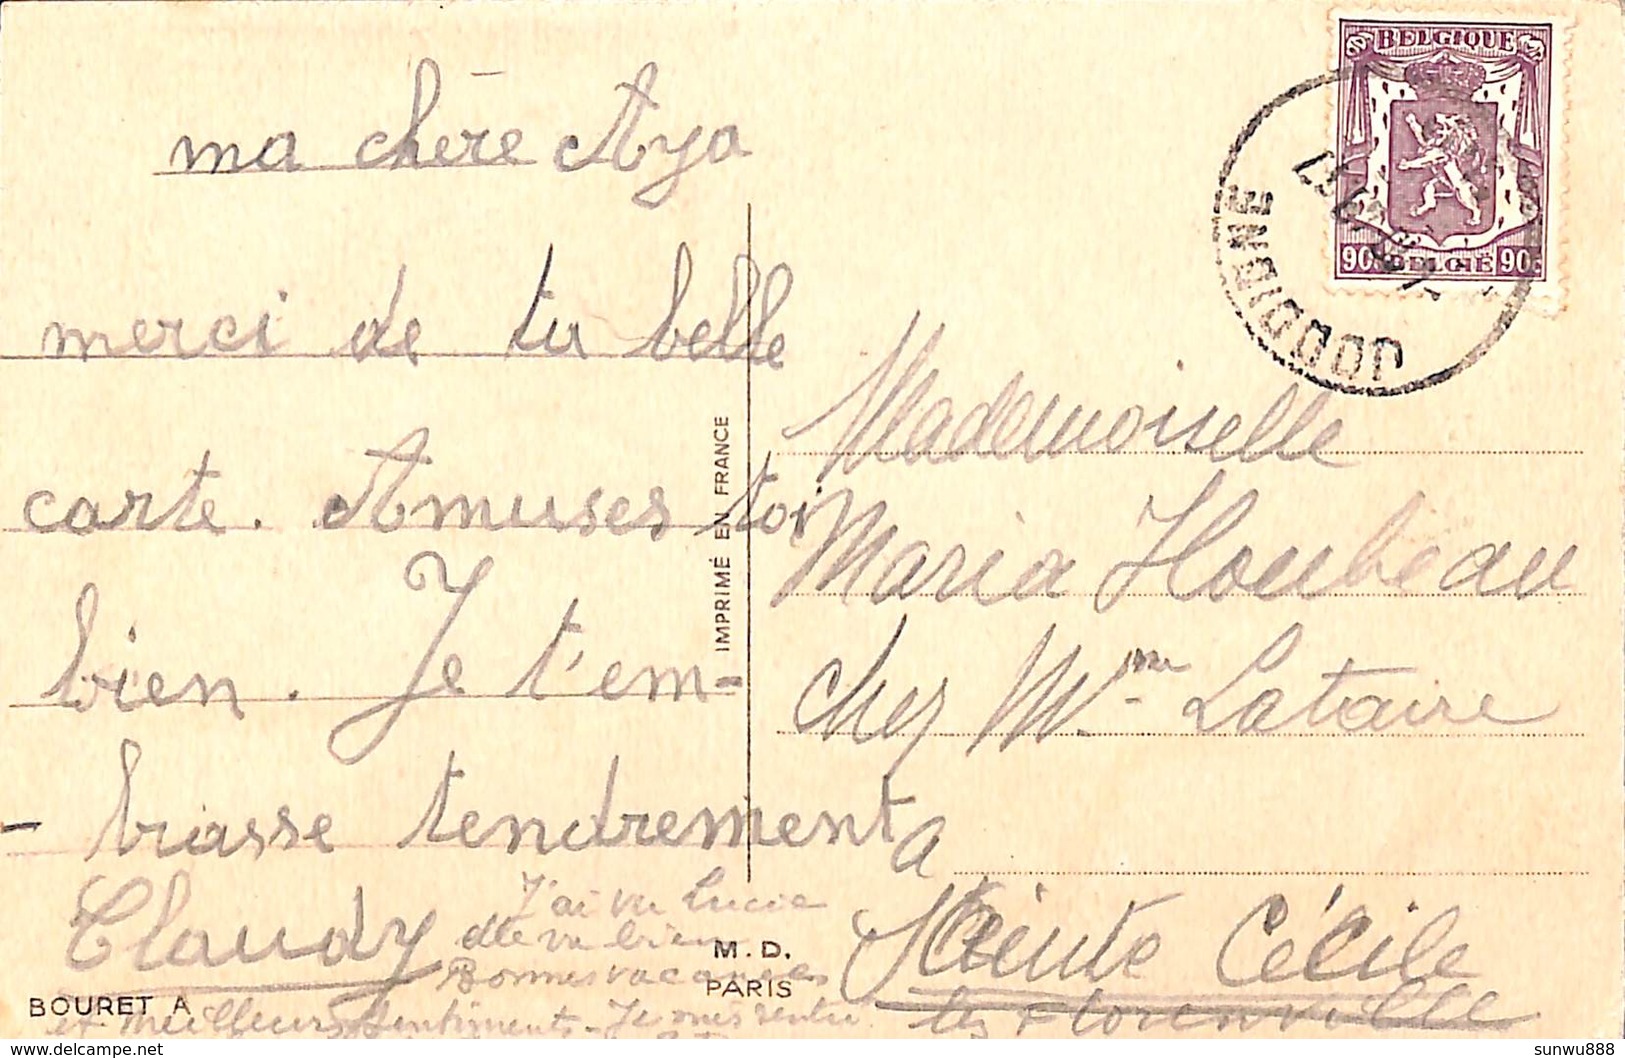 ma chère Aya
merci de ta belle
carte. Amuses toi
bien. Je t'em-
- brasse tendrement
Claudy
J'ai vu Lucie
elle va bien
Bonnes vacances
et meilleurs sentiments - Je suis
BOURET A
IMPRIMÉ EN FRANCE
M. D.
PARIS
BELGIQUE
90c BELGIE 90c
JODOIGNE
Mademoiselle
Maria Houbeau
chez Mme Lataire
a
Sainte Cécile
lez Florenville
sunwu888